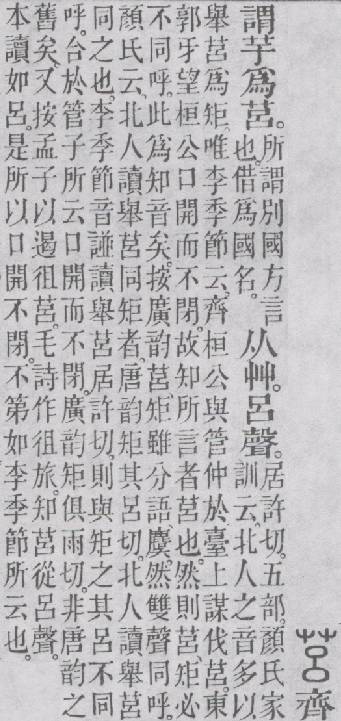 莒 齊
謂芋爲莒。所謂別國方言也。借爲國名。从艸。呂聲。居許切。五部。顏氏家訓云。北人之音多以
舉莒爲矩。唯李季節云。齊桓公與管仲於臺上謀伐莒。東
郭牙望桓公口開而不閉。故知所言者莒也。然則莒矩必
不同呼。此爲知音矣。按廣韵莒矩雖分語麌。然雙聲同呼。
顏氏云。北人讀舉莒同矩者。唐韵矩其呂切。北人讀舉莒
同之也。李季節音諩讀舉莒居許切。則與矩之其呂不同
呼。合於管子所云口開而不閉。廣韵矩俱雨切。非唐韵之
舊矣。又按孟子以遏徂莒。毛詩作徂旅。知莒從呂聲。
本讀如呂。是所以口開不閉。不第如李季節所云也。